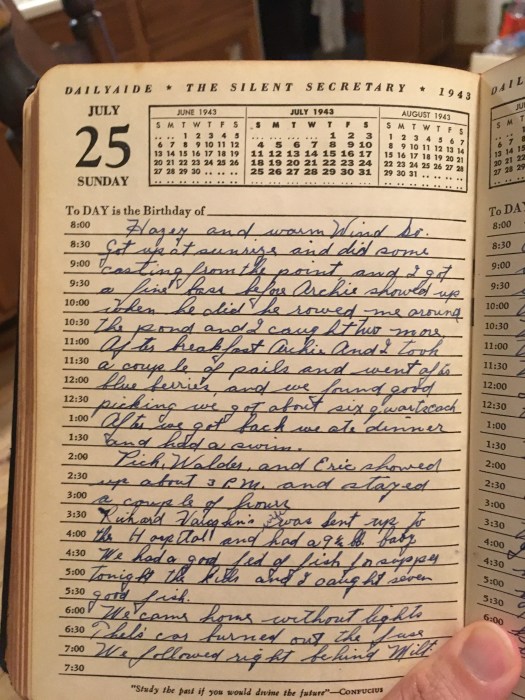 DAILYAIDE * THE SILENT SECRETARY * 1943
JULY
25
SUNDAY
JUNE 1943
S M T W T F S
.. .. 1 2 3 4 5
6 7 8 9 10 11 12
13 14 15 16 17 18 19
20 21 22 23 24 25 26
27 28 29 30 .. .. ..
JULY 1943
S M T W T F S
.. .. .. .. 1 2 3
4 5 6 7 8 9 10
11 12 13 14 15 16 17
18 19 20 21 22 23 24
25 26 27 28 29 30 31
AUGUST 1943
S M T W T F S
1 2 3 4 5 6 7
8 9 10 11 12 13 14
15 16 17 18 19 20 21
22 23 24 25 26 27 28
29 30 31 .. .. .. ..
To DAY is the Birthday of
8:00 Hazey and warm Wind So.
8:30 Got up at sunrize and did some
9:00 casting from the point and I got
9:30 a fine bass before Archie showed up
10:00 when he did he rowed me around
10:30 the pond and I caught two more
11:00 After breakfast Archie And I took
11:30 a couple of pails and went after
12:00 blue berries, and we found good
12:30 picking we got about six quarts each
1:00 After we got back we ate dinner
1:30 and had a swim.
2:00 Walder, and Eric showed
2:30 up about 3 P.M. and stayed
3:00 a couple of hours
3:30 Richard Vaughn's was sent up to
4:00 the Hospital and had a lb baby
4:30 We had a good fed of fish for supper
5:00 tonight the kills and I caught seven
5:30 good fish.
6:00 We came home without lights
6:30 Thel's car burned out the fuse
7:00 We followed right behing Milt
7:30
"Study the past if you would divine the future"—CONFUCIUS